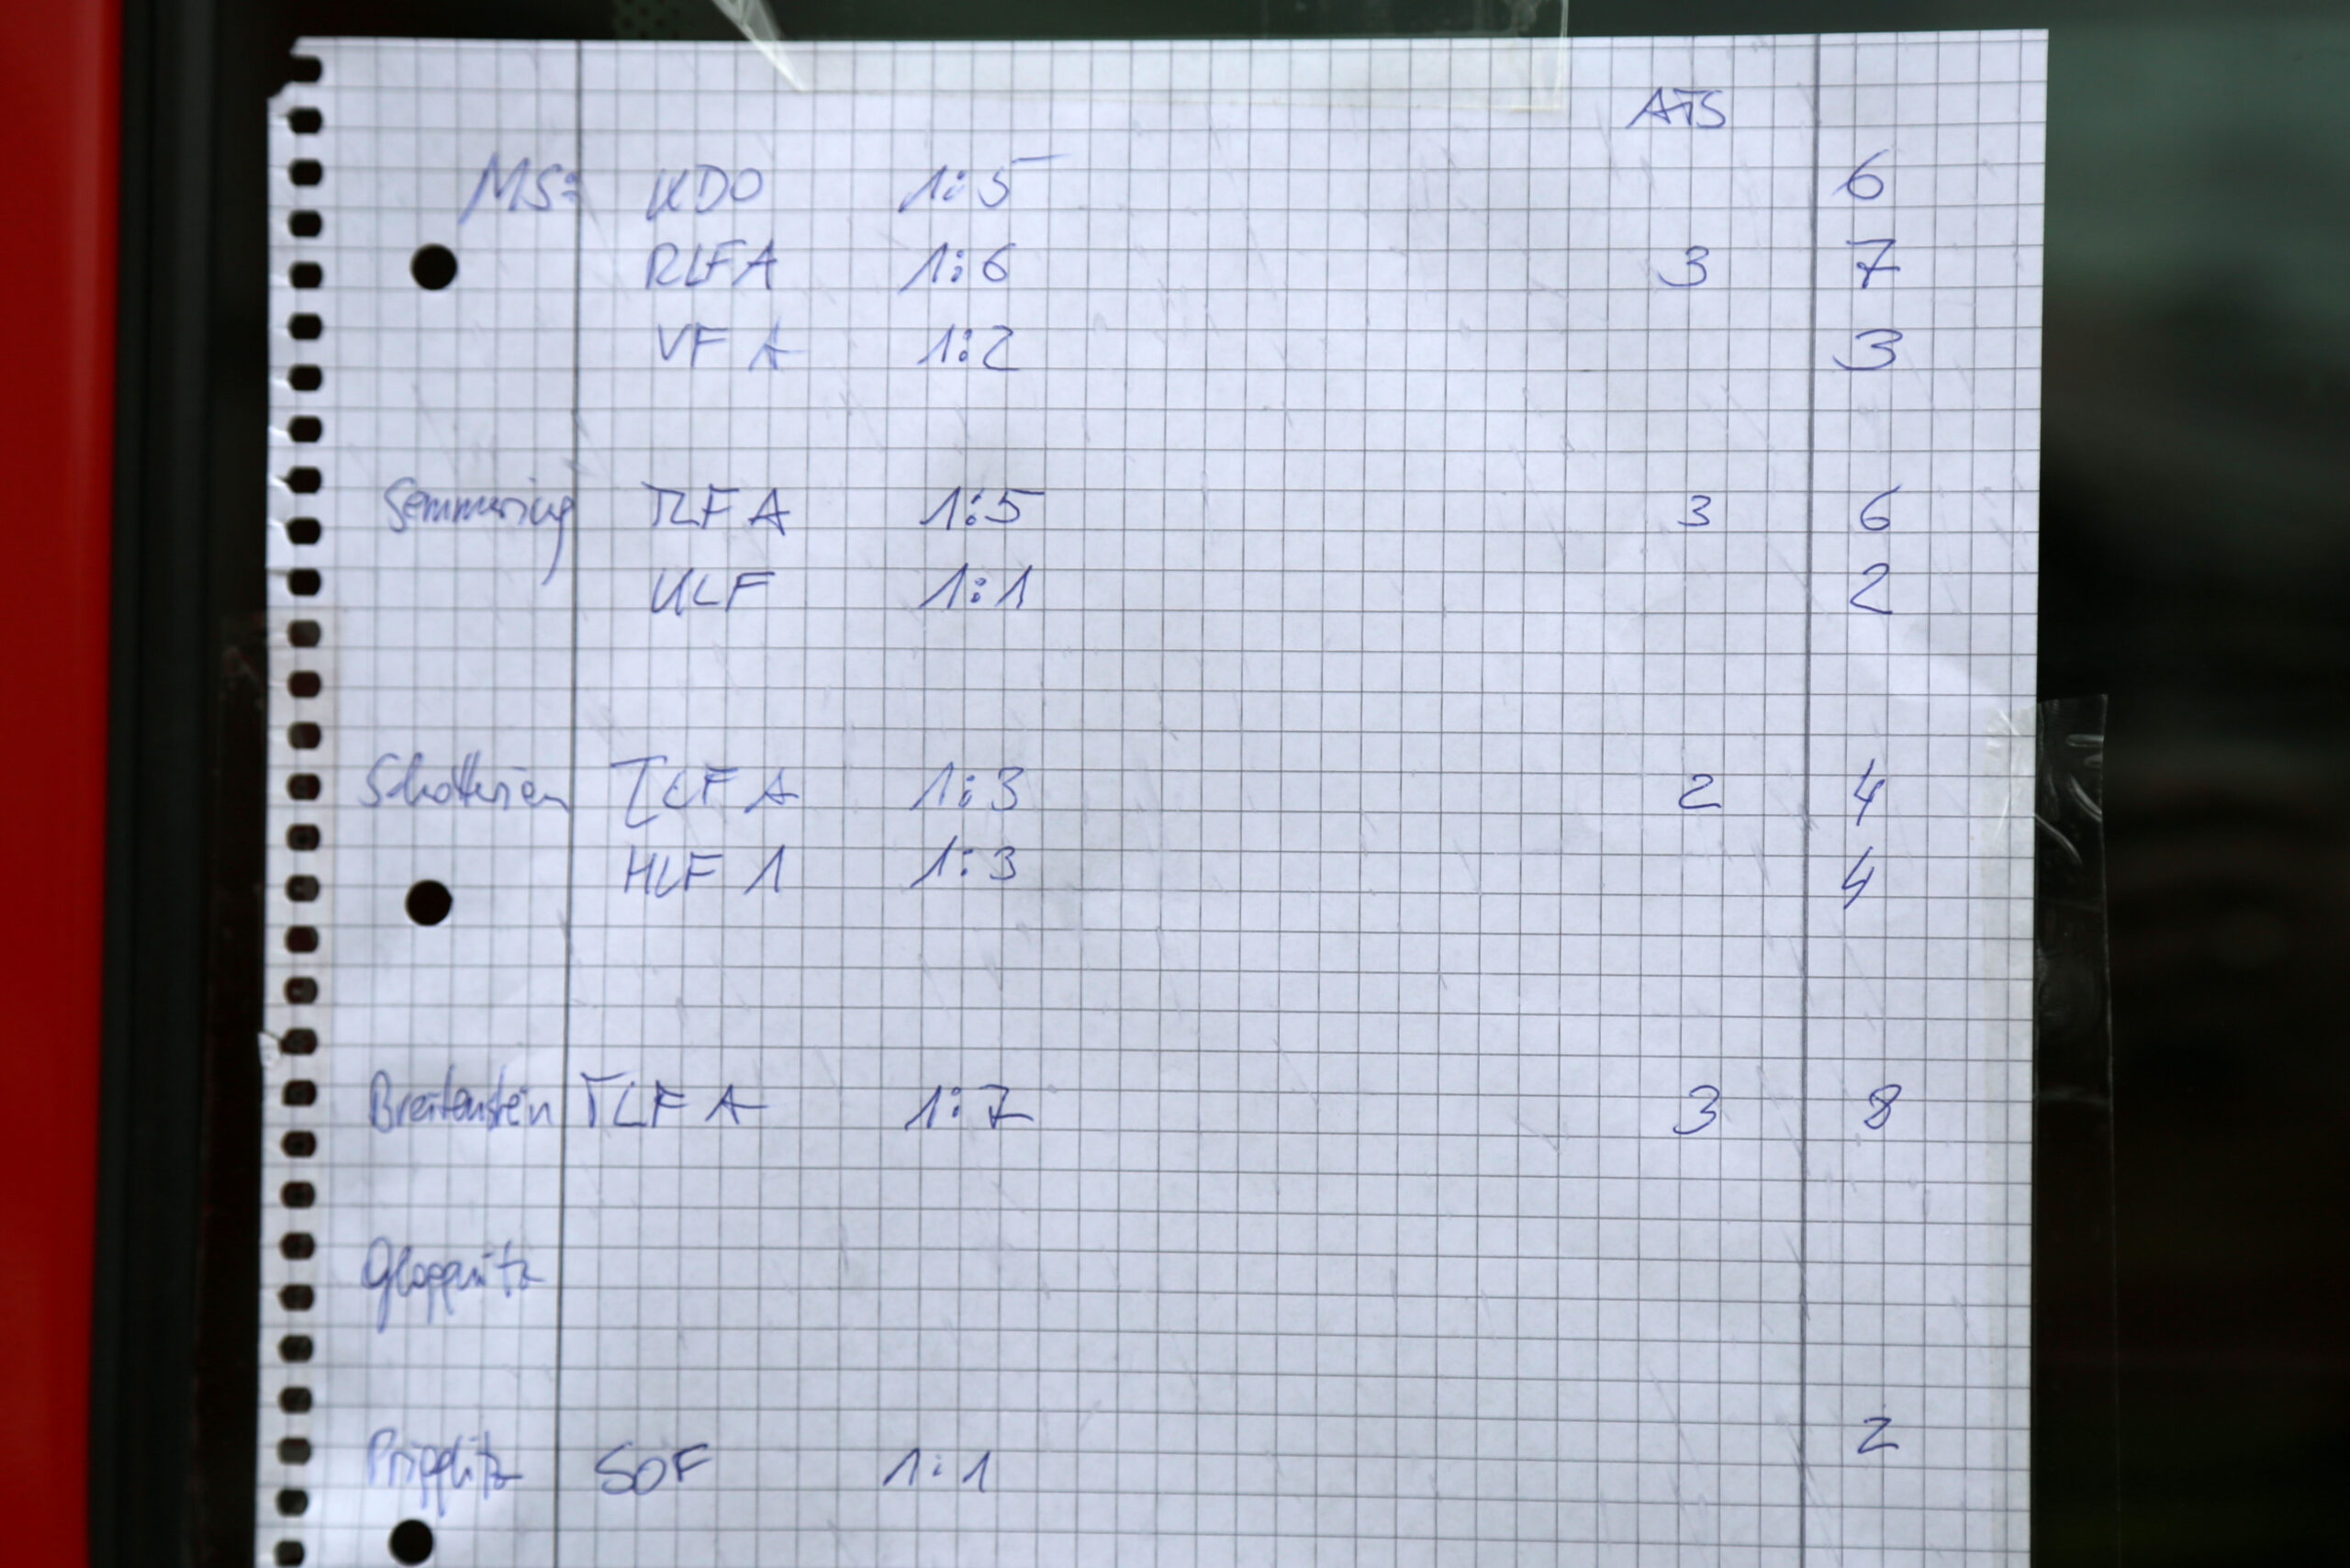 ATS
MS: KDO 1:5 6
RLFA 1:6 3 7
VF A 1:2 3
Semmering TLF A 1:5 3 6
KLF 1:1 2
Schottwien TLF A 1:3 2 4
HLF 1 1:3 4
Breitenstein TLF A 1:7 3 8
Gloggnitz
Prigglitz SOF 1:1 2